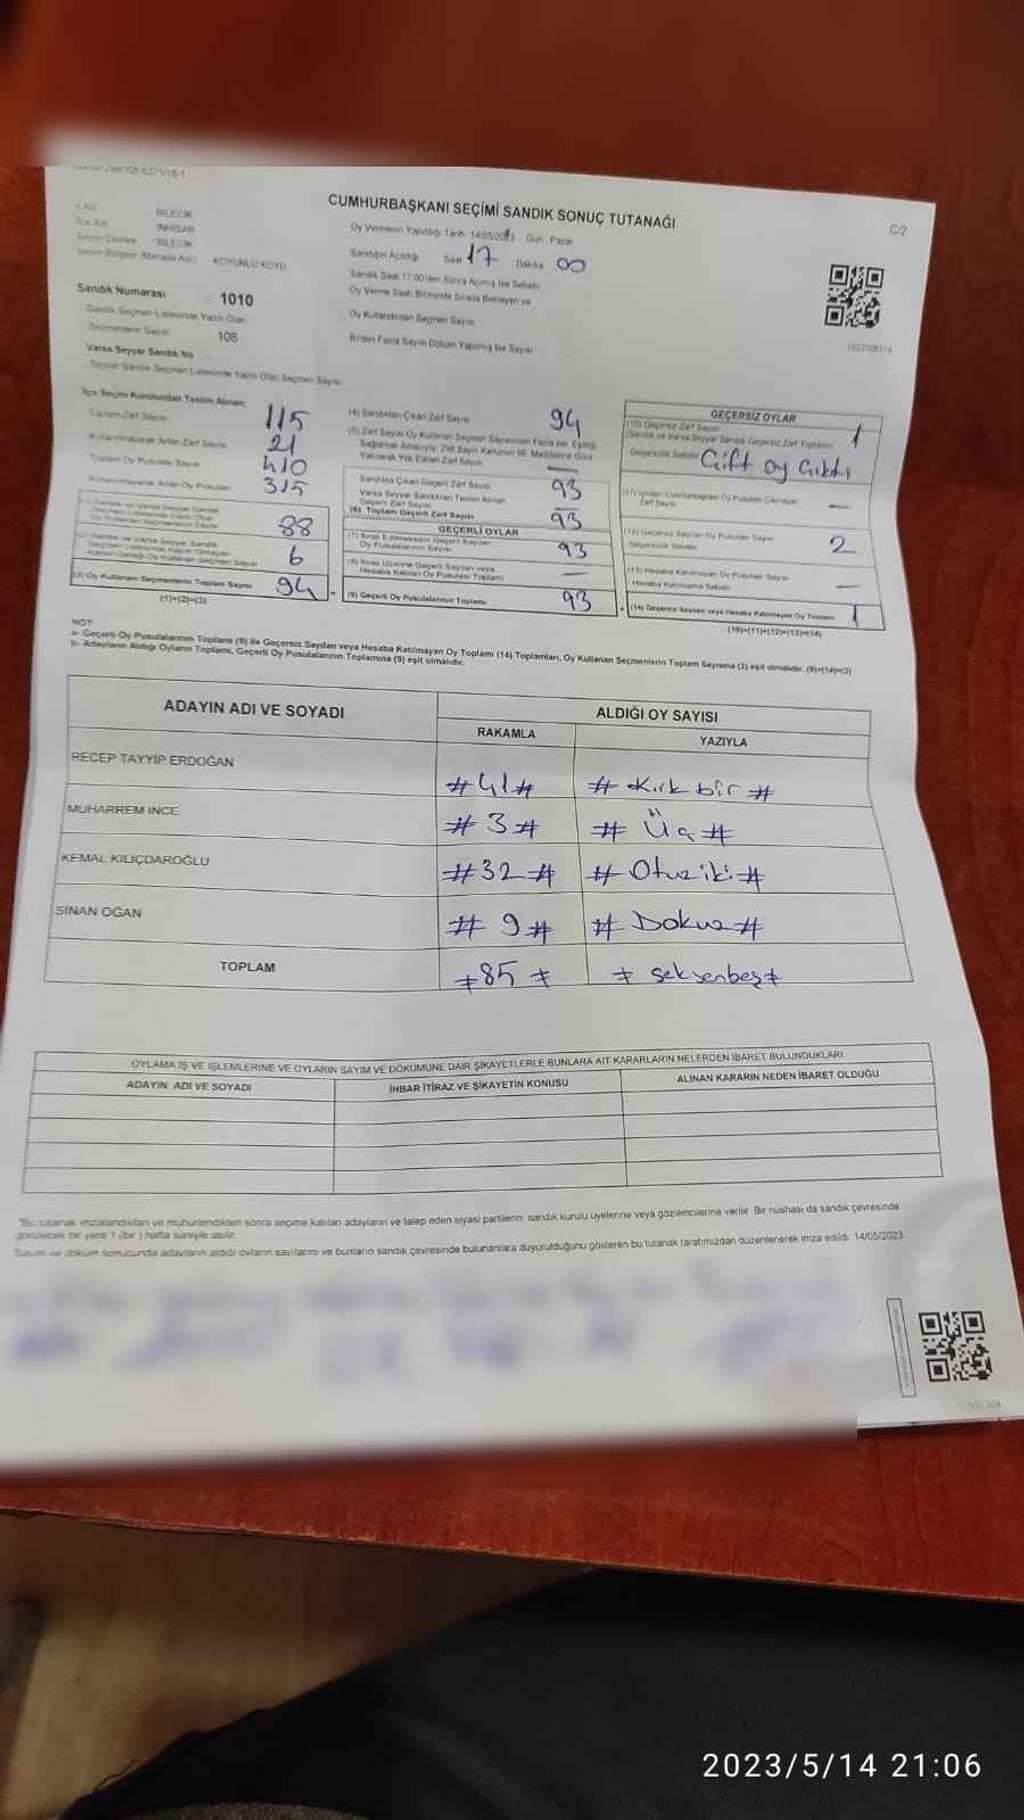 CUMHURBAŞKANI SEÇİMİ SANDIK SONUÇ TUTANAĞI
C/2
BİLECİK
İNHİSAR
BİLECİK
KOYUNLU KÖYÜ
Oy Vermenin Yapıldığı Tarih 14/05/2023 Gün Pazar
Sandığın Açıldığı Saat 17 Dakika 00
Sandık Saat 17.00'den Sonra Açılmış İse Sebebi
Oy Verme Saati Bitiminde Sırada Bekleyen ve
Oy Kullandırılan Seçmen Sayısı
Birden Fazla Sayım Döküm Yapılmış İse Sayısı
Sandık Numarası : 1010
Sandık Seçmen Listesinde Yazılı Olan
Seçmenlerin Sayısı 106
Varsa Seyyar Sandık No
Seyyar Sandık Seçmen Listesinde Yazılı Olan Seçmen Sayısı
İlçe Seçim Kurulundan Teslim Alınan
Toplam Zarf Sayısı 115
Kullanılmayarak Artan Zarf Sayısı 21
Toplam Oy Pusulası Sayısı 410
Kullanılmayarak Artan Oy Pusulası 315
88
6
(3) Oy Kullanan Seçmenlerin Toplam Sayısı 94
(1)+(2)=(3)
(4) Sandıktan Çıkan Zarf Sayısı 94
(5) Zarf Sayısı Oy Kullanan Seçmen Sayısından Fazla İse, Eşitliği
Sağlamak Amacıyla, 298 Sayılı Kanunun 98. Maddesine Göre
Yakılarak Yok Edilen Zarf Sayısı —
Sandıkta Çıkan Geçerli Zarf Sayısı 93
Varsa Seyyar Sandıktan Teslim Alınan
Geçerli Zarf Sayısı
(6) Toplam Geçerli Zarf Sayısı 93
GEÇERLİ OYLAR
(7) İtiraz Edilmeksizin Geçerli Sayılan
Oy Pusulalarının Sayısı 93
(8) İtiraz Üzerine Geçerli Sayılan veya
Hesaba Katılan Oy Pusulası Toplamı —
(9) Geçerli Oy Pusulalarının Toplamı 93
GEÇERSİZ OYLAR
(10) Geçersiz Zarf Sayısı
(Sandık ve Varsa Seyyar Sandık Geçersiz Zarf Toplamı) 1
Geçersizlik Sebebi Çift oy çıktı
—
(12) Geçersiz Sayılan Oy Pusulası Sayısı 2
Geçersizlik Sebebi
(13) Hesaba Katılmayan Oy Pusulası Sayısı
Hesaba Katılmama Sebebi —
(14) Geçersiz Sayılan veya Hesaba Katılmayan Oy Toplamı 1
(10)+(11)+(12)+(13)=(14)
NOT:
a- Geçerli Oy Pusulalarının Toplamı (9) ile Geçersiz Sayılan veya Hesaba Katılmayan Oy Toplamı (14) Toplamları, Oy Kullanan Seçmenlerin Toplam Sayısına (3) eşit olmalıdır. (9)+(14)=(3)
b- Adayların Aldığı Oyların Toplamı, Geçerli Oy Pusulalarının Toplamına (9) eşit olmalıdır.
ADAYIN ADI VE SOYADI
ALDIĞI OY SAYISI
RAKAMLA YAZIYLA
RECEP TAYYİP ERDOĞAN #41# # Kırk bir #
MUHARREM İNCE #3# # Üç #
KEMAL KILIÇDAROĞLU #32# # Otuziki #
SİNAN OĞAN #9# # Dokuz #
TOPLAM #85# # seksenbeş #
OYLAMA İŞ VE İŞLEMLERİNE VE OYLARIN SAYIM VE DÖKÜMÜNE DAİR ŞİKAYETLERLE BUNLARA AİT KARARLARIN NELERDEN İBARET BULUNDUKLARI
ADAYIN ADI VE SOYADI İHBAR İTİRAZ VE ŞİKAYETİN KONUSU ALINAN KARARIN NEDEN İBARET OLDUĞU
"Bu tutanak imzalandıktan ve mühürlendikten sonra seçime katılan adayların ve talep eden siyasi partilerin, sandık kurulu üyelerine veya gözlemcilerine verilir. Bir nüshası da sandık çevresinde
görülecek bir yere 1 (bir ) hafta süreyle asılır.
Sayım ve döküm sonucunda adayların aldığı oyların sayılarını ve bunların sandık çevresinde bulunanlara duyurulduğunu gösteren bu tutanak tarafımızdan düzenlenerek imza edildi. 14/05/2023
2023/5/14 21:06